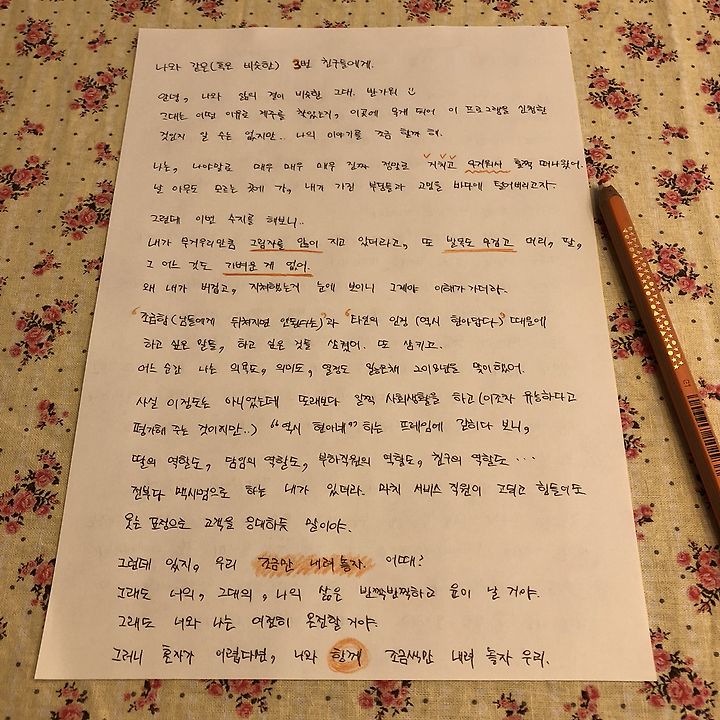 나와 같은(혹은 비슷한) 3번 친구들에게.
안녕, 나와 삶의 결이 비슷한 그대. 반가워 :)
그대는 어떤 이유로 제주를 찾았는지, 이곳에 묵게 되어 이 프로그램을 신청한
것인지 알 수는 없지만.. 나의 이야기를 조금 할까 해.
나는, 나야말로 매우 매우 매우 진짜 정말로 거지고 무거워서 훌쩍 떠나왔어.
날 아무도 모르는 곳에 가, 내가 가진 부담들과 고민을 바다에 털어버리고자.
그런데 이번 수지를 해보니..
내가 무거우리만큼 그림자를 많이 지고 있더라고, 또 발목도 무겁고 머리, 팔,
그 어느 것도 가벼운 게 없어.
왜 내가 버겁고, 지쳐했는지 눈에 보이니 그제야 이해가 가더라.
'조급함(남들에게 뒤쳐지면 안된다는)'과 '타인의 인정(역시 현아답다)' 때문에
하고 싶은 말들, 하고 싶은 것들 숨겼어. 또 삼키고.
어느 순간 나는 의욕도, 의미도, 열정도 잃은채 2018년을 맞이했어.
사실 이정도는 아니었는데 또래보다 일찍 사회생활을 하고(이조차 유능하다고
평가해 주는 것이지만..) "역시 현아네" 하는 프레임에 갇히다 보니,
딸의 역할도, 담임의 역할도, 부하직원의 역할도, 친구의 역할도 ···
전부다 맥시멈으로 하는 내가 있더라. 마치 서비스 직원이 고되고 힘들어도
웃는 표정으로 고객을 응대하듯 말이야.
그런데 있지, 우리 조금만 내려 놓자. 어때?
그래도 너의, 그대의, 나의 삶은 반짝반짝하고 윤이 날 거야.
그래도 너와 나는 여전히 온전할 거야.
그러니 혼자가 어렵다면, 나와 함께 조금씩만 내려 놓자 우리.